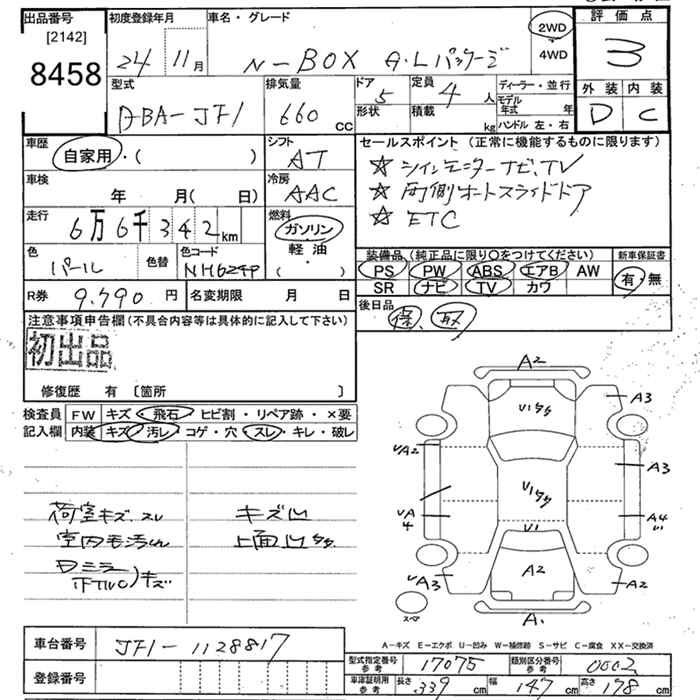 出品番号 初度登録年月 車名・グレード 評価点
[2142]
8458 24 11月 N-BOX G・Lパッケージ 2WD 4WD 3
型式 排気量 ドア 定員 ディーラー・並行 外装 内装
DBA-JF1 660cc 5 4人 モデル年式 年 D C
形状 積載 kg ハンドル 左・右
車歴 シフト セールスポイント (正常に機能するものに限ります)
自家用・( ) AT ☆ ツインモニターナビ、TV
車検 冷房 ☆ 両側オートスライドドア
年 月( 日) AAC ☆ ETC
走行 燃料
6万6千342km ガソリン
軽油
・( )
装備品 (純正品に限り〇をつけてください) 新車保証書
色 パール 色替 色コード NH624P
PS PW ABS エアB AW 有・無
SR ナビ TV カワ
R券 9.790円 名変期限 月 日
後日品
保、取
注意事項申告欄(不具合内容等は具体的に記入して下さい)
初出品
修復歴 有 [箇所 ]
検査員 FW キズ・飛石・ヒビ割・リペア跡・×要
記入欄 内装 キズ・汚レ・コゲ・穴・スレ・キレ・破レ
荷室キズ、スレ キズ凹
室内毛汚れ 上面凹
キズ
A2
A3
A3
A4
A2
A2
スペア
A-キズ E-エクボ U-凹み W-補修跡 S-サビ C-腐食 XX-交換済
車台番号 JF1-1128817
登録番号
型式指定番号 参考 17075 類別区分番号 参考 0002
車庫証明用 参考 長さ 339cm 幅 147cm 高さ 178cm